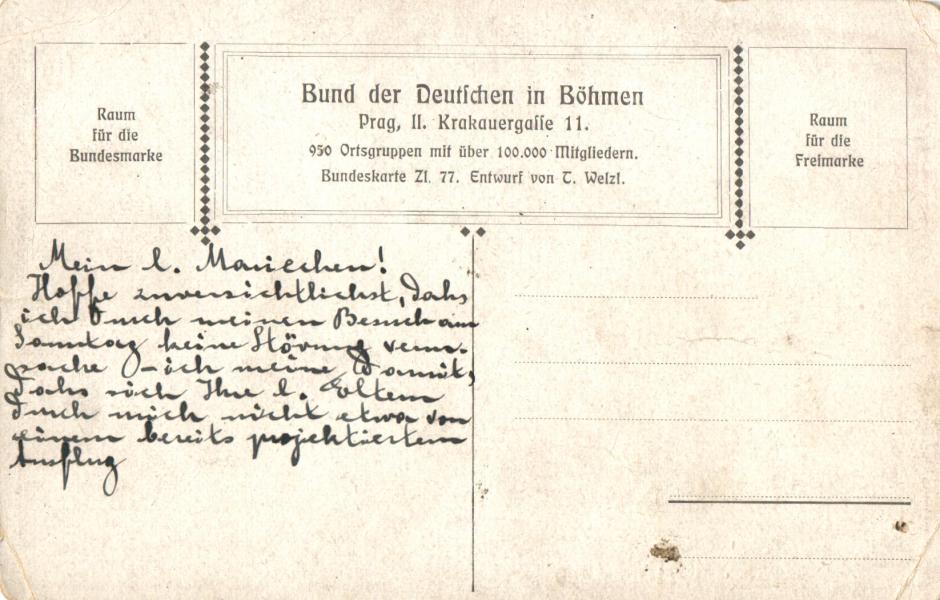 Raum
für die
Bundesmarke
Bund der Deutschen in Böhmen
Prag, II. Krakauergasse 11.
950 Ortsgruppen mit über 100.000 Mitgliedern.
Bundeskarte Zl. 77. Entwurf von T. Welzl.
Raum
für die
Freimarke
Mein l. Mariechen!
Hoffe zuversichtlichst, dahs
ich durch meinen Besuch am
Sonntag keine Störung verur-
sache – ich meine damit,
dahs sich Ihre l. Eltern
durch mich nicht etwa von
einem bereits projektiertem
Ausflug